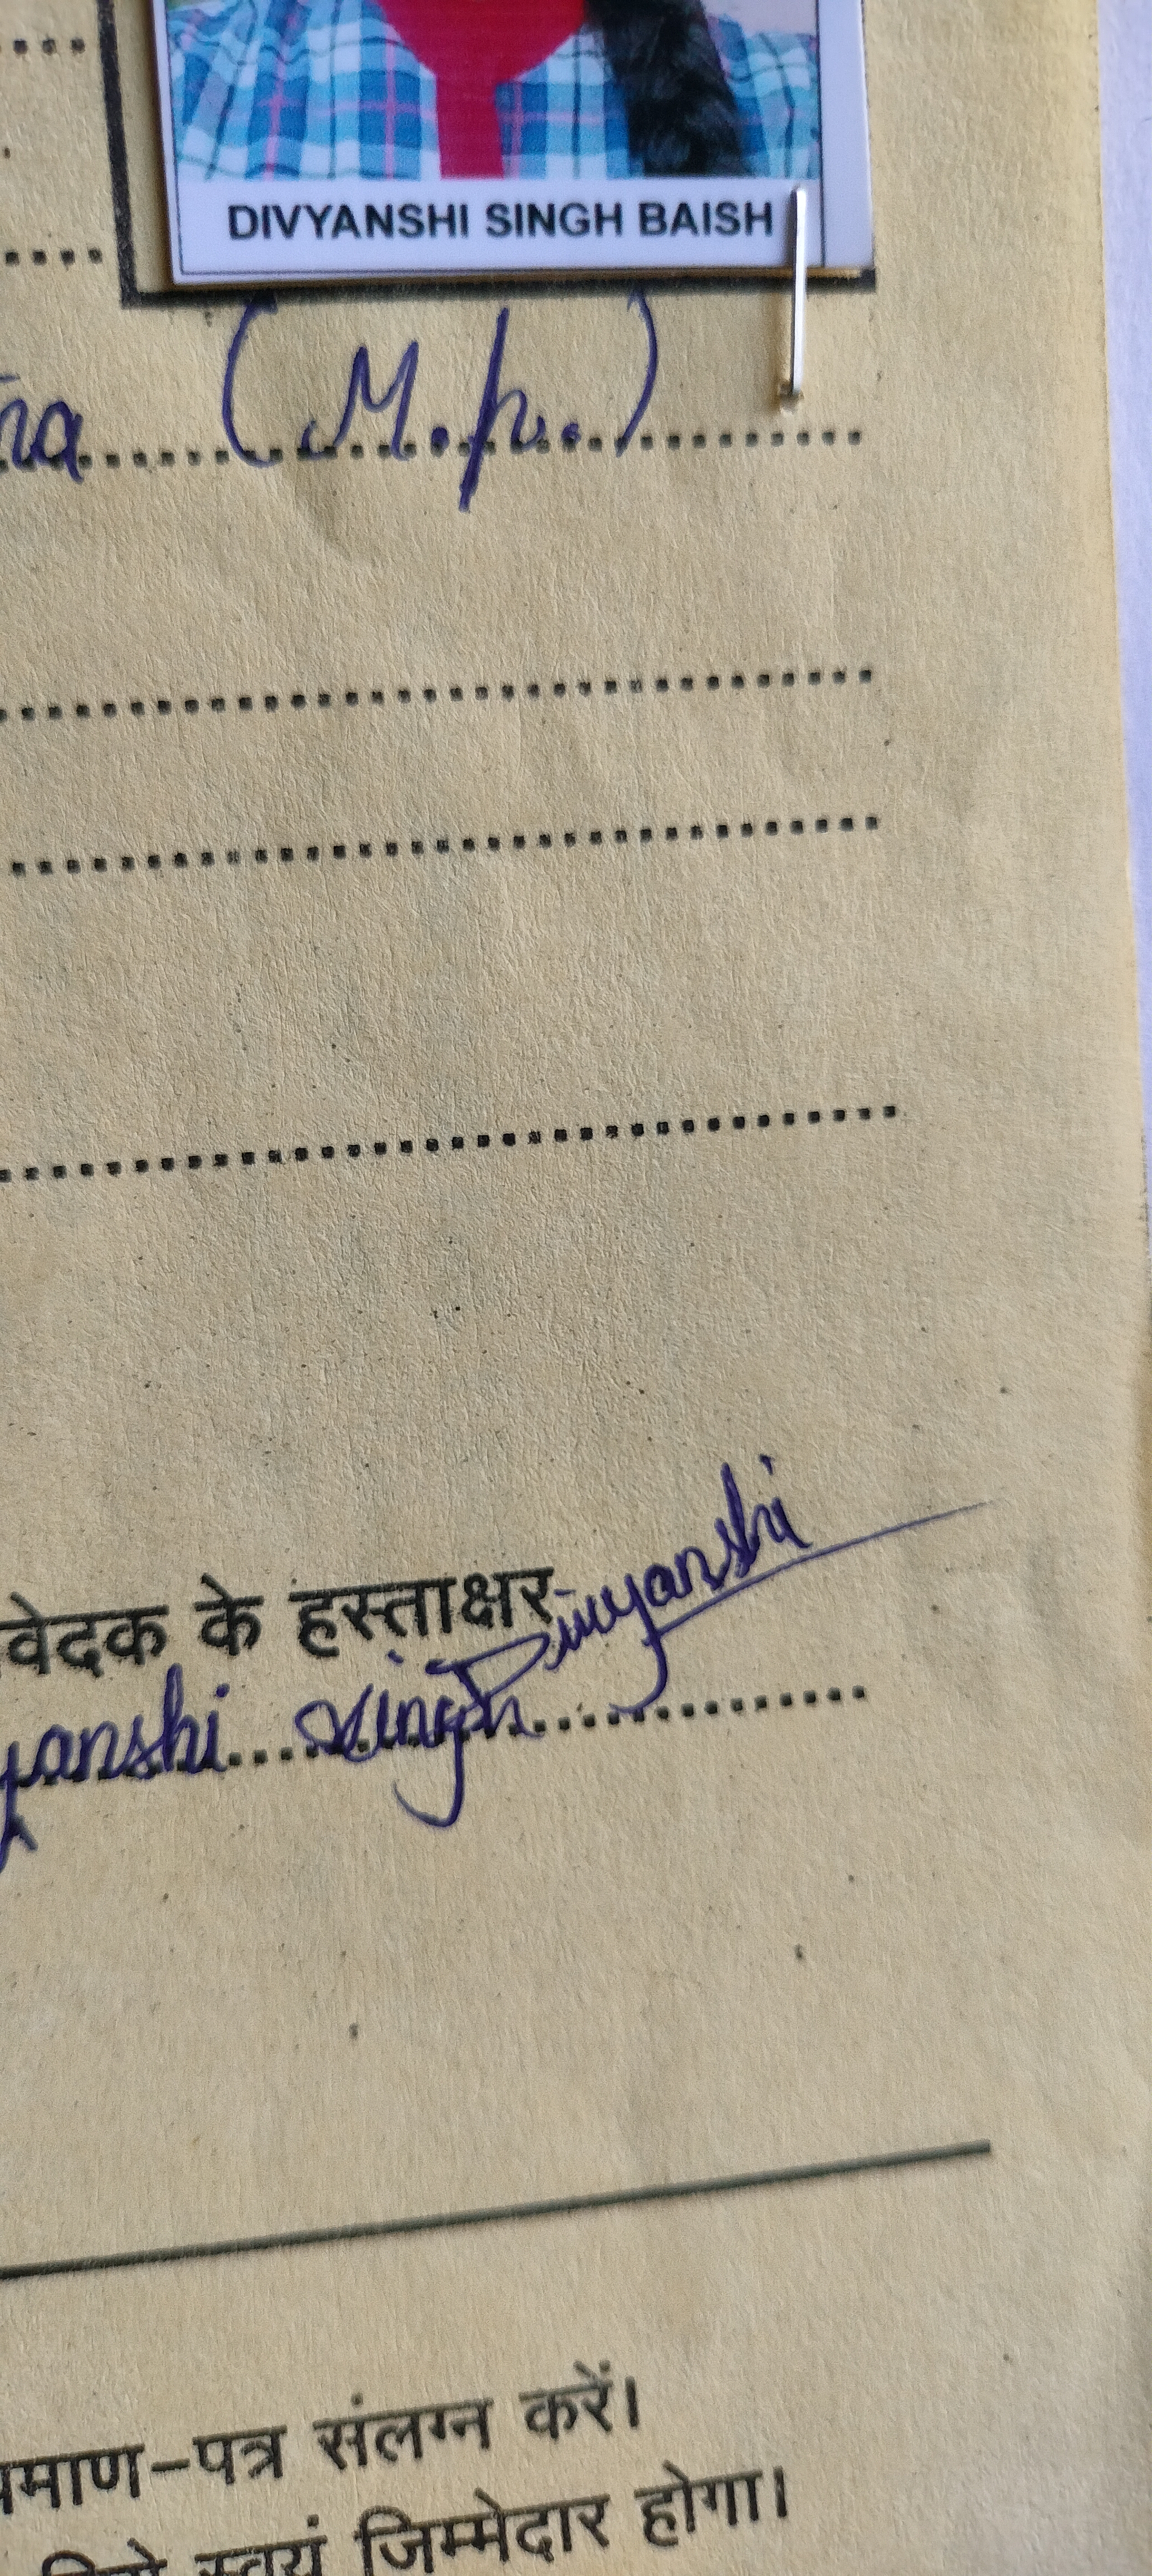 DIVYANSHI SINGH BAISH
(M.p.)
के हस्ताक्षर Divyanshi
yanshi Singh
संलग्न करें।
स्वयं जिम्मेदार होगा।